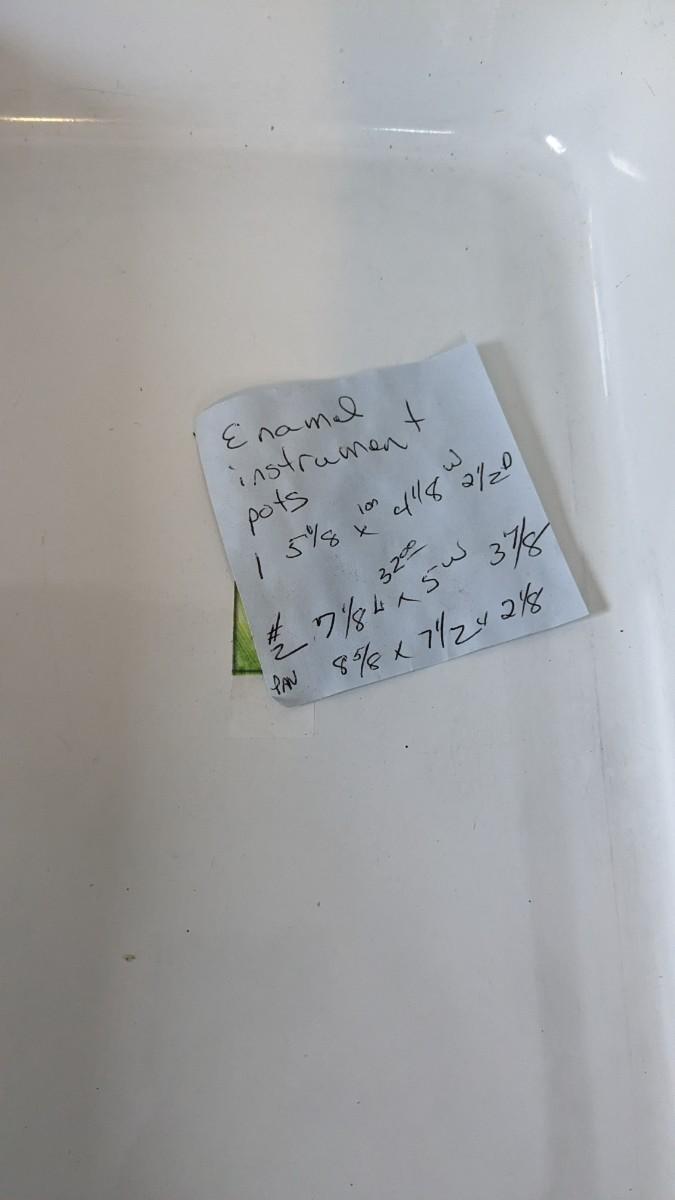 Enamel
instrument
pots
1 5 1/8 x 4 1/8 W 2 1/2 D
32 00
#2 7 1/8 L x 5 W 3 7/8
PAN 8 5/8 x 7 1/2 x 2 1/8